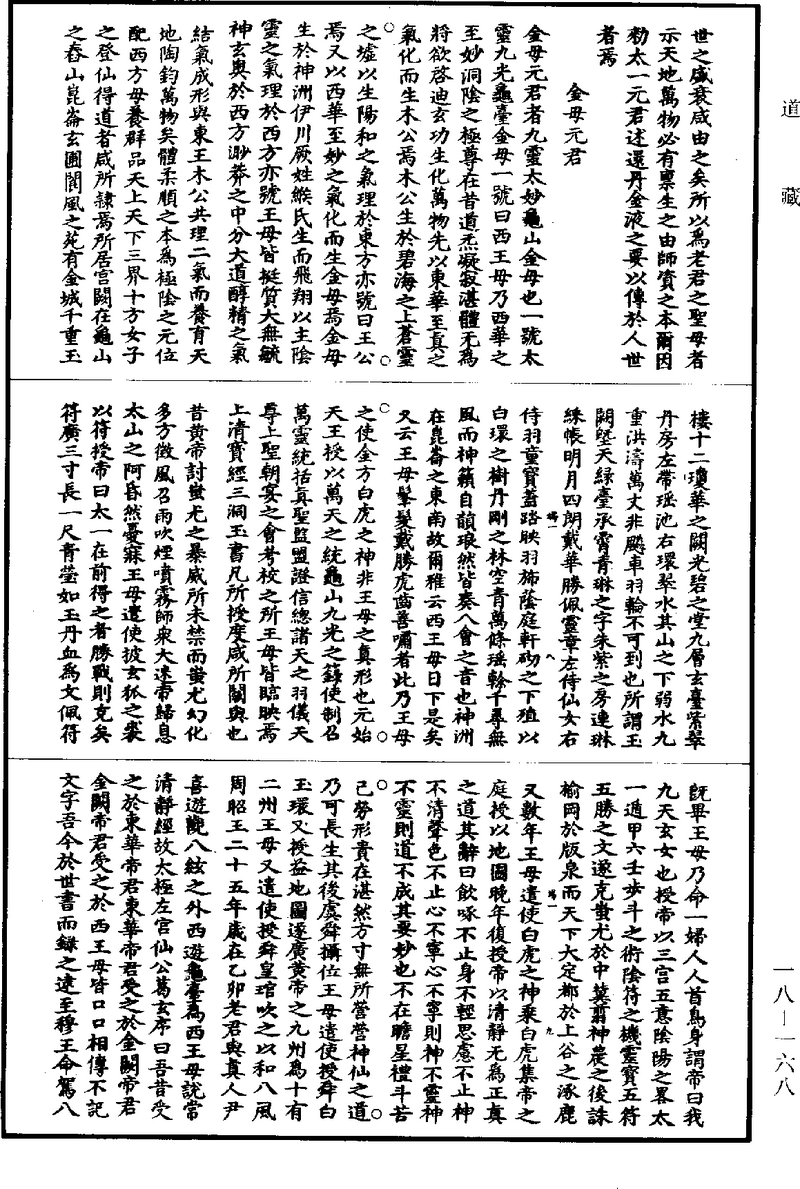 道藏
世之盛衰咸由之矣所以爲老君之聖母者
示天地萬物必有稟生之由師資之本爾因
勑太一元君述還丹金液之要以傳於人世
者焉
金母元君
金母元君者九靈太妙龜山金母也一號太
靈九光龜臺金母一號曰西王母乃西華之
至妙洞陰之極尊在昔道炁凝寂湛體无爲
將欲啓迪玄功生化萬物先以東華至真之
氣化而生木公焉木公生於碧海之上蒼靈
之墟以生陽和之氣理於東方亦號曰王公
焉又以西華至妙之氣化而生金母焉金母
生於神洲伊川厥姓緱氏生而飛翔以主陰
靈之氣理於西方亦號王母皆挺質大無毓
神玄奧於西方渺莽之中分大道醇精之氣
結氣成形與東王木公共理二氣而養育天
地陶鈞萬物矣體柔順之本爲極陰之元位
配西方母養群品天上天下三界十方女子
之登仙得道者咸所隸焉所居宮闕在龜山
之舂山崑崙玄圃閬風之苑有金城千重玉
樓十二瓊華之闕光碧之堂九層玄臺紫翠
丹房左帶瑤池右環翠水其山之下弱水九
重洪濤萬丈非飈車羽輪不可到也所謂玉
闕塈天綠臺承霄青琳之宇朱紫之房連琳
綵帳明月四朗戴華勝佩靈章左侍仙女右
侍羽童寶蓋踏映羽斾蔭庭軒砌之下殖以
白環之樹丹剛之林空青萬條瑤榦千尋無
風而神籟自韻琅然皆奏八會之音也神洲
在崑崙之東南故爾雅云西王母日下是矣
又云王母髼髮戴勝虎齒善嘯者此乃王母
之使金方白虎之神非王母之真形也元始
天王授以萬天之統龜山九光之籙使制召
萬靈統括真聖監盟證信總諸天之羽儀天
尊上聖朝宴之會考校之所王母皆臨映焉
上清寶經三洞玉書凡所授度咸所關與也
昔黃帝討蚩尤之暴威所未禁而蚩尤幻化
多方徵風召雨吹煙噴霧師衆大迷帝歸息
太山之阿昏然憂寐王母遣使披玄狐之裘
以符授帝曰太一在前得之者勝戰則克矣
符廣三寸長一尺青瑩如玉丹血爲文佩符
既畢王母乃命一婦人人首鳥身謂帝曰我
九天玄女也授帝以三宮五意陰陽之畧太
一遁甲六壬步斗之術陰符之機靈寶五符
五勝之文遂克蚩尤於中冀翦神農之後誅
榆罔於版泉而天下大定都於上谷之涿鹿
又數年王母遣使白虎之神乘白虎集帝之
庭授以地圖晚年復授帝以清靜无爲正真
之道其辭曰飲啄不止身不輕思慮不止神
不清聲色不止心不寧心不寧則神不靈神
不靈則道不成其要妙也不在瞻星禮斗苦
己勞形貴在湛然方寸無所營營神仙之道
乃可長生其後虞舜攝位王母遣使授舜白
玉環又授益地圖遂廣黄帝之九州爲十有
二州王母又遣使授舜皇琯吹之以和八風
周昭王二十五年歲在乙卯老君與真人尹
喜遊觀八紘之外西遊龜臺爲西王母說常
清靜經故太極左宮仙公葛玄序曰吾昔受
之於東華帝君東華帝君受之於金闕帝君
金闕帝君受之於西王母皆口口相傳不記
文字吾今於世書而錄之逮至穆王命駕八
一八—一六八